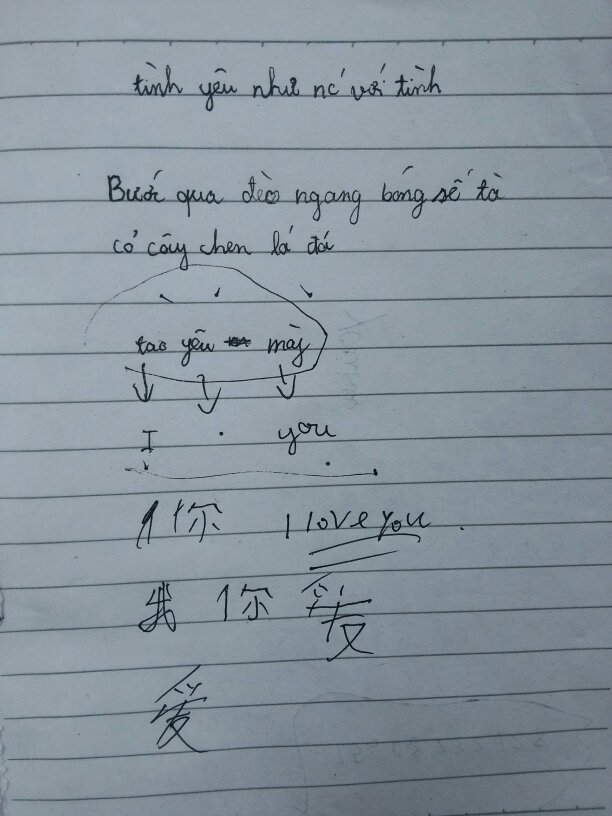 tình yêu như nć với tình
Bước qua đèo ngang bóng sế tà
cỏ cây chen lá đá
tao yêu mày
I you
你 I love you.
我 你 爱
爱